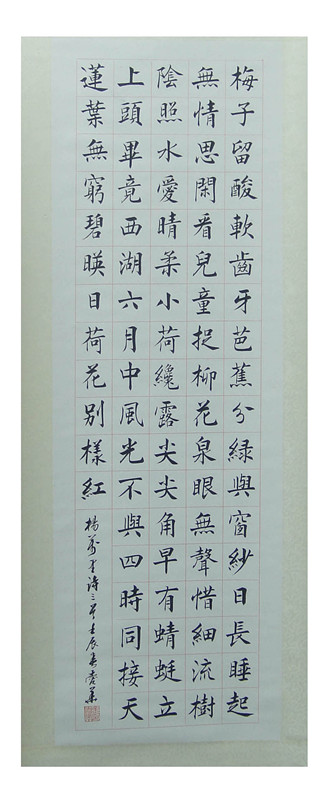 梅子留酸軟齒牙芭蕉分綠與窗紗日長睡起
無情思閑看兒童捉柳花泉眼無聲惜細流樹
陰照水愛晴柔小荷纔露尖尖角早有蜻蜓立
上頭畢竟西湖六月中風光不與四時同接天
蓮葉無窮碧暎日荷花别樣紅
楊萬里詩三首壬辰春